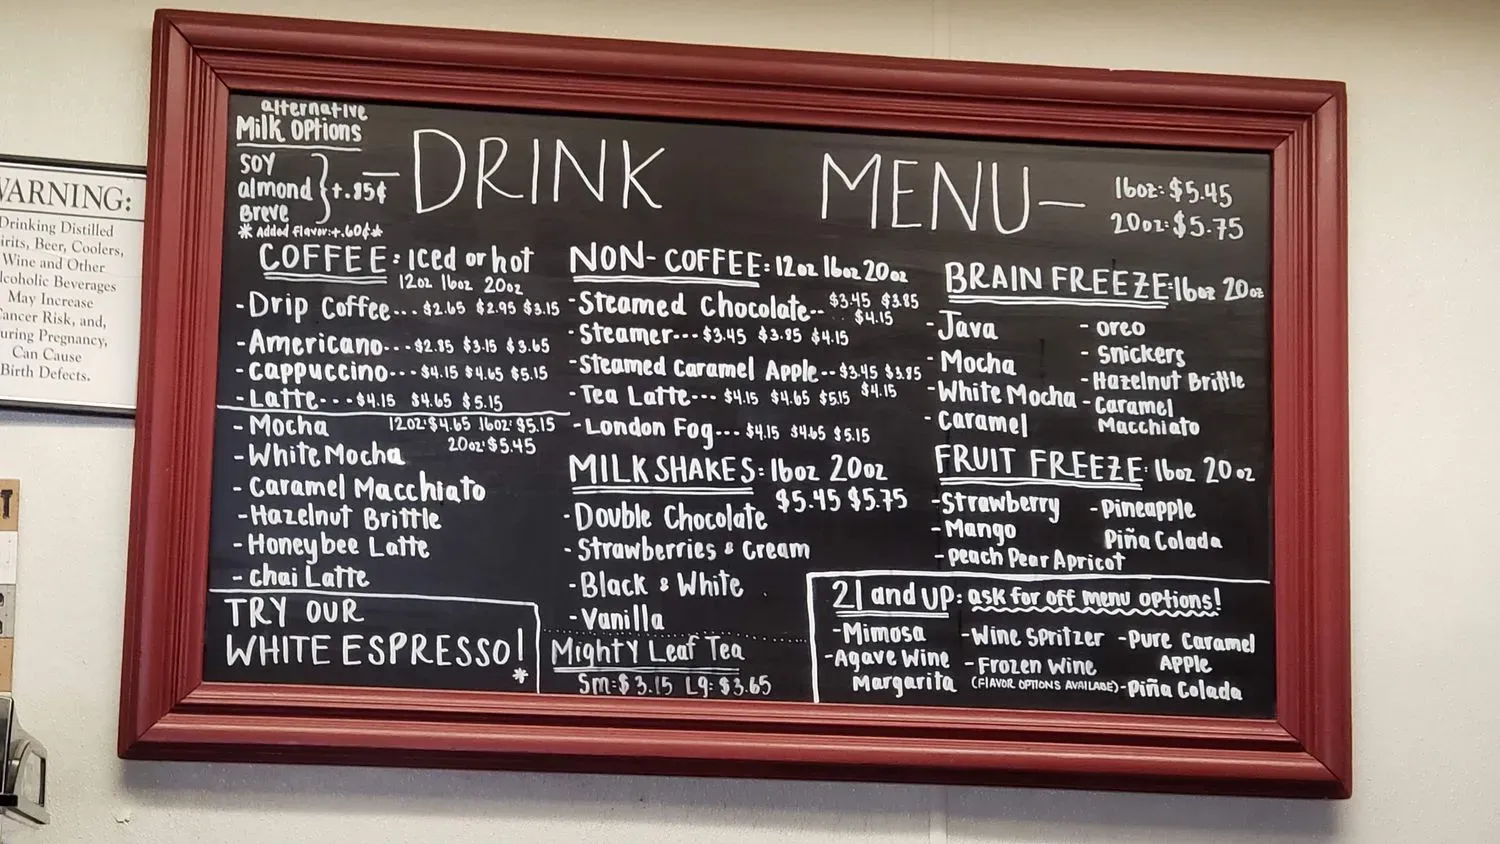 WARNING:
Drinking Distilled
Spirits, Beer, Coolers,
Wine and Other
Alcoholic Beverages
May Increase
Cancer Risk, and,
During Pregnancy,
Can Cause
Birth Defects.
alternative
Milk Options
SOY
almond
Breve
+.85¢
* Added Flavor:+.60¢*
— DRINK MENU —
16oz: $5.45
20oz: $5.75
COFFEE: Iced or hot
12oz 16oz 20oz
- Drip Coffee... $2.65 $2.95 $3.15
- Americano--- $2.85 $3.15 $3.65
- cappuccino--- $4.15 $4.65 $5.15
- Latte---- $4.15 $4.65 $5.15
- Mocha 12oz: $4.65 16oz: $5.15
20oz: $5.45
- White Mocha
- Caramel Macchiato
- Hazelnut Brittle
- Honeybee Latte
- chai Latte
TRY OUR
WHITE ESPRESSO!
*
NON-COFFEE: 12oz 16oz 20oz
- Steamed Chocolate-- $3.45 $3.85
$4.15
- Steamer--- $3.45 $3.85 $4.15
- Steamed Caramel Apple-- $3.45 $3.85
$4.15
- Tea Latte--- $4.15 $4.65 $5.15
- London Fog--- $4.15 $4.65 $5.15
MILKSHAKES: 16oz 20oz
$5.45 $5.75
- Double Chocolate
- Strawberries & Cream
- Black & White
- Vanilla
Mighty Leaf Tea
Sm: $3.15 Lg: $3.65
BRAIN FREEZE: 16oz 20oz
- Java
- Mocha
- White Mocha
- Caramel
- oreo
- Snickers
- Hazelnut Brittle
- Caramel
Macchiato
FRUIT FREEZE: 16oz 20oz
- Strawberry
- Mango
- peach Pear Apricot
- Pineapple
Piña Colada
21 and UP: ask for off menu options!
- Mimosa
- Agave Wine
Margarita
- Wine Spritzer
- Frozen Wine
(FlAVOR OPTIONS AVAILABE)
- Pure Caramel
APPle
- Piña Colada